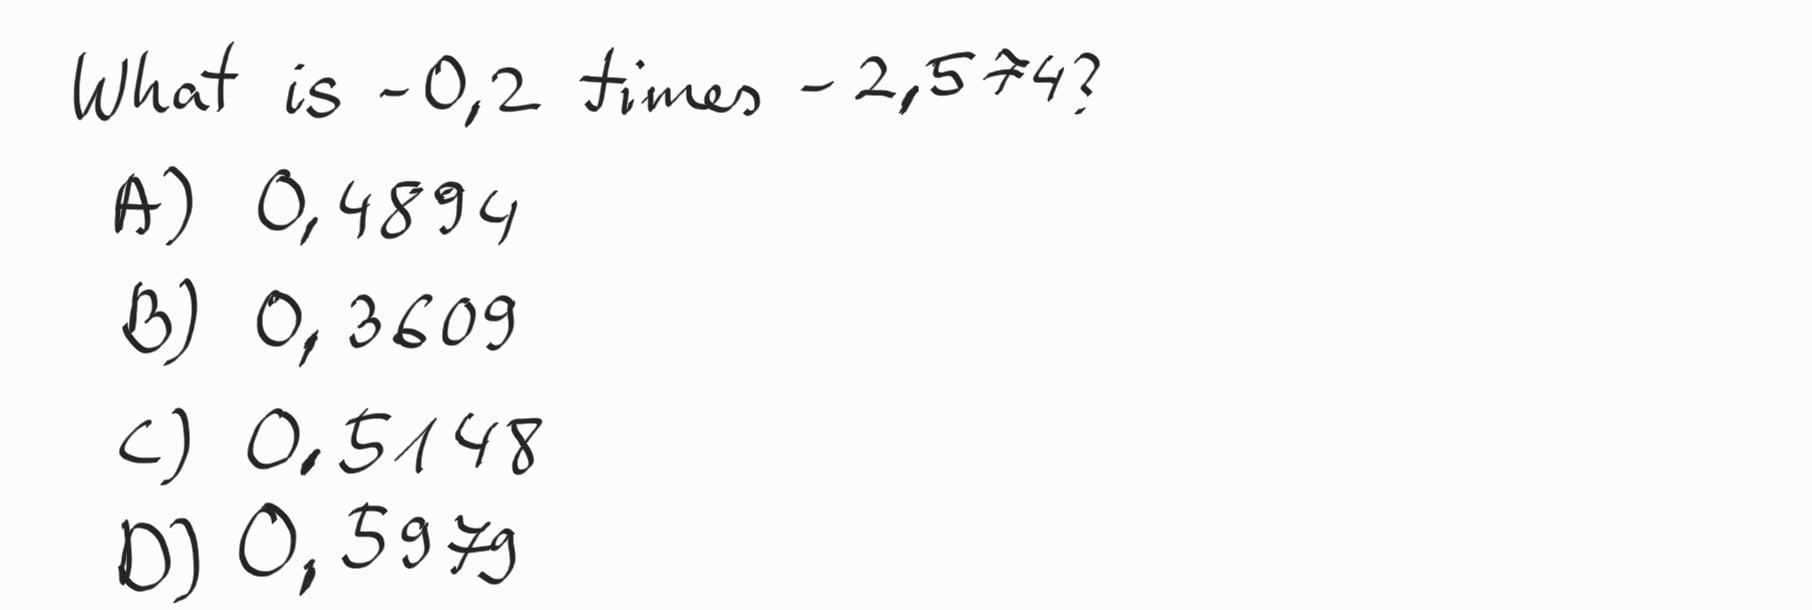 What is -0,2 times -2,574?
A) 0,4894
B) 0,3609
C) 0,5148
D) 0,5979